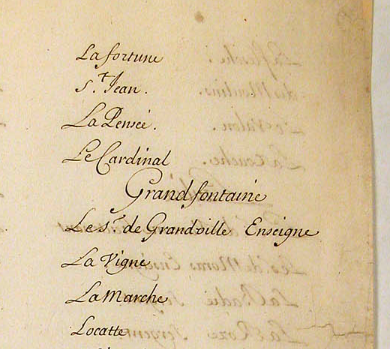 La fortune
S.t Jean.
La Pensée.
Le Cardinal
Grandfontaine
Le s.r de Grandville Enseigne
La Vigne
La Marche
Locatte